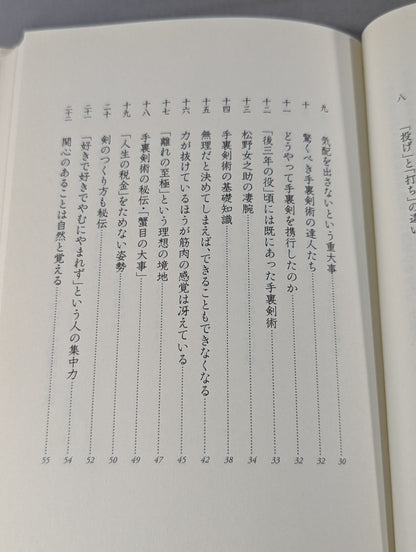 八　「投げ」と「打ち」の違い
九　気配を出さないという重大事……30
十　驚くべき手裏剣術の達人たち……32
十一　どうやって手裏剣を携行したのか……32
十二　「後三年の役」頃には既にあった手裏剣術……33
十三　松野女之助の凄腕……34
十四　手裏剣術の基礎知識……38
十五　無理だと決めてしまえば、できることもできなくなる……42
十六　力が抜けているほうが筋肉の感覚は冴えている……45
十七　「離れの至極」という理想の境地……47
十八　手裏剣術の秘伝・「蟹目の大事」……49
十九　「人生の税金」をためない姿勢……50
二十　剣のつくり方も秘伝……52
二十一　「好きで好きでやむにやまれず」という人の集中力……54
二十二　関心のあることは自然と覚える……55